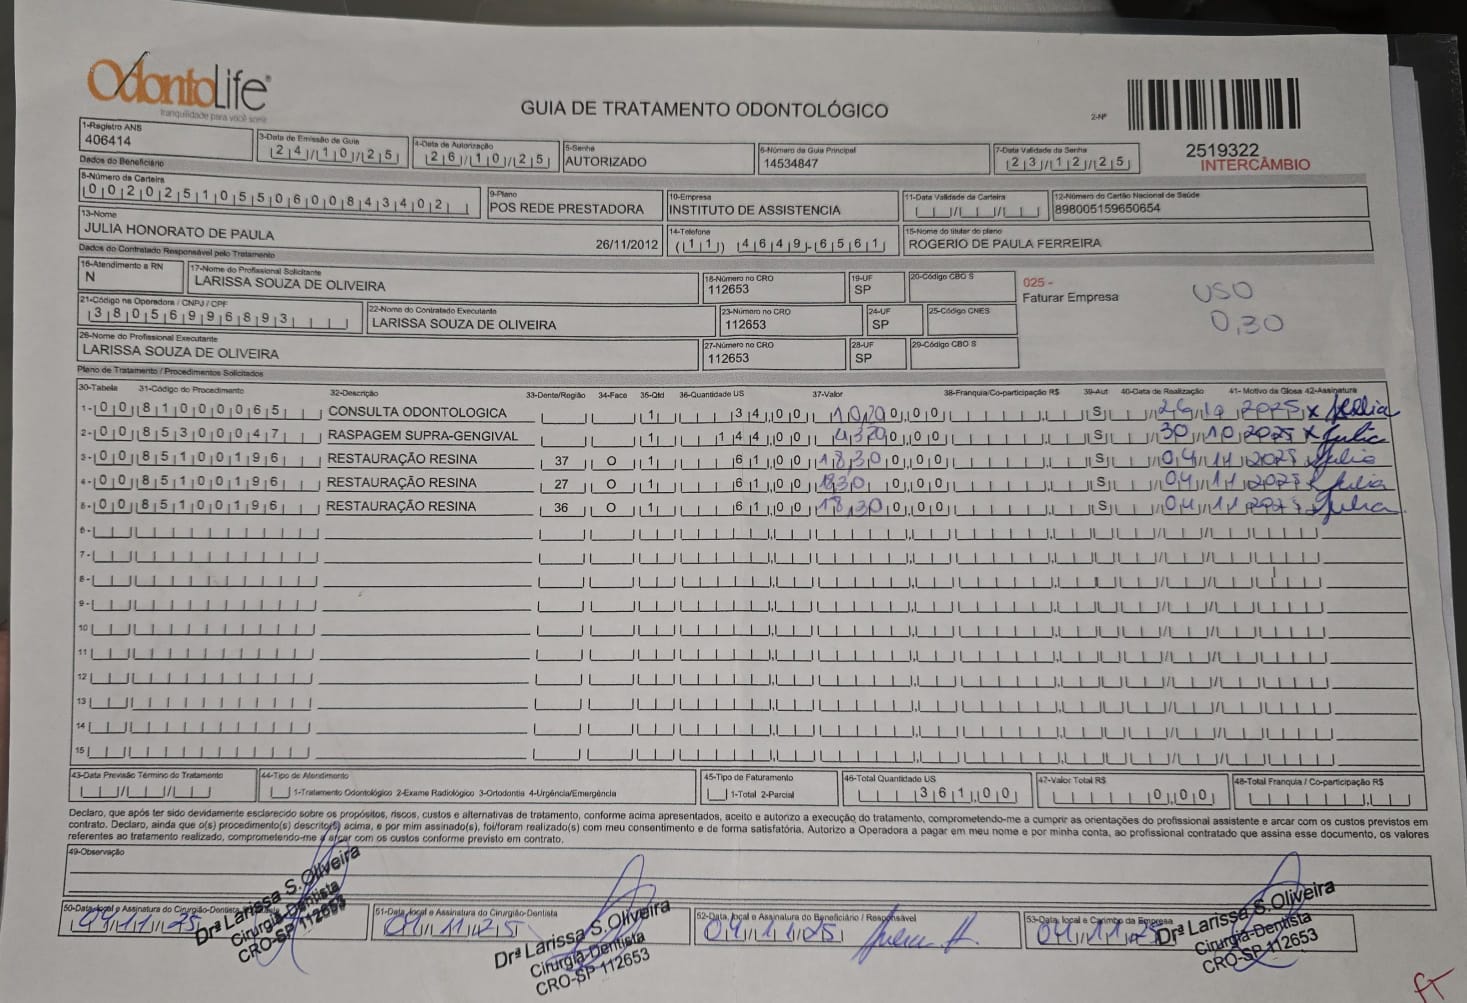 OdontoLife
tranquilidade para você sorrir
GUIA DE TRATAMENTO ODONTOLÓGICO
2-Nº
2519322
INTERCÂMBIO
1-Registro ANS
406414
3-Data de Emissão da Guia
24/10/25
4-Data de Autorização
26/10/25
5-Senha
AUTORIZADO
6-Número da Guia Principal
14534847
7-Data Validade da Senha
23/12/25
Dados do Beneficiário
8-Número da Carteira
00202510550600843402
9-Plano
POS REDE PRESTADORA
10-Empresa
INSTITUTO DE ASSISTENCIA
11-Data Validade da Carteira
12-Número do Cartão Nacional de Saúde
898005159650654
13-Nome
JULIA HONORATO DE PAULA
26/11/2012
14-Telefone
(11) 4649-6561
15-Nome do titular do plano
ROGERIO DE PAULA FERREIRA
Dados do Contratado Responsável pelo Tratamento
16-Atendimento a RN
N
17-Nome do Profissional Solicitante
LARISSA SOUZA DE OLIVEIRA
18-Número no CRO
112653
19-UF
SP
20-Código CBO S
025 -
Faturar Empresa
USO
0,30
21-Código na Operadora / CNPJ / CPF
38056996893
22-Nome do Contratado Executante
LARISSA SOUZA DE OLIVEIRA
23-Número no CRO
112653
24-UF
SP
25-Código CNES
26-Nome do Profissional Executante
LARISSA SOUZA DE OLIVEIRA
27-Número no CRO
112653
28-UF
SP
29-Código CBO S
Plano de Tratamento / Procedimentos Solicitados
30-Tabela 31-Código do Procedimento 32-Descrição 33-Dente/Região 34-Face 35-Qtd 36-Quantidade US 37-Valor 38-Franquia/Co-participação R$ 39-Aut 40-Data de Realização 41- Motivo da Glosa 42-Assinatura
1- 00 81000065 CONSULTA ODONTOLOGICA 1 34,00 10,20 0,00 S 10 2025 x Julia
2- 00 85300047 RASPAGEM SUPRA-GENGIVAL 1 144,00 43,20 0,00 S 30 10 2025 x Julia
3- 00 85100196 RESTAURAÇÃO RESINA 37 O 1 61,00 18,30 0,00 S 04 11 2025 x Julia
4- 00 85100196 RESTAURAÇÃO RESINA 27 O 1 61,00 18,30 0,00 S 04 11 2025 x Julia
5- 00 85100196 RESTAURAÇÃO RESINA 36 O 1 61,00 18,30 0,00 S 04 11 2025 x Julia
6-
7-
8-
9-
10
11
12
13
14
15
43-Data Previsão Término do Tratamento
44-Tipo de Atendimento
1-Tratamento Odontológico 2-Exame Radiológico 3-Ortodontia 4-Urgência/Emergência
45-Tipo de Faturamento
1-Total 2-Parcial
46-Total Quantidade US
361,00
47-Valor Total R$
0,00
48-Total Franquia / Co-participação R$
Declaro, que após ter sido devidamente esclarecido sobre os propósitos, riscos, custos e alternativas de tratamento, conforme acima apresentados, aceito e autorizo a execução do tratamento, comprometendo-me a cumprir as orientações do profissional assistente e arcar com os custos previstos em
contrato. Declaro, ainda que o(s) procedimento(s) descrito(s) acima, e por mim assinado(s), foi/foram realizado(s) com meu consentimento e de forma satisfatória. Autorizo a Operadora a pagar em meu nome e por minha conta, ao profissional contratado que assina esse documento, os valores
referentes ao tratamento realizado, comprometendo-me a arcar com os custos conforme previsto em contrato.
49-Observação
50-Data, local e Assinatura do Cirurgião-Dentista
04/11/25
Drª Larissa S. Oliveira
Cirurgiã-Dentista
CRO-SP 112653
51-Data, local e Assinatura do Cirurgião-Dentista
04/11/25
Drª Larissa S. Oliveira
Cirurgiã-Dentista
CRO-SP 112653
52-Data, local e Assinatura do Beneficiário / Responsável
04/11/25
53-Data, local e Carimbo da Empresa
04/11/25
Drª Larissa S. Oliveira
Cirurgiã-Dentista
CRO-SP 112653